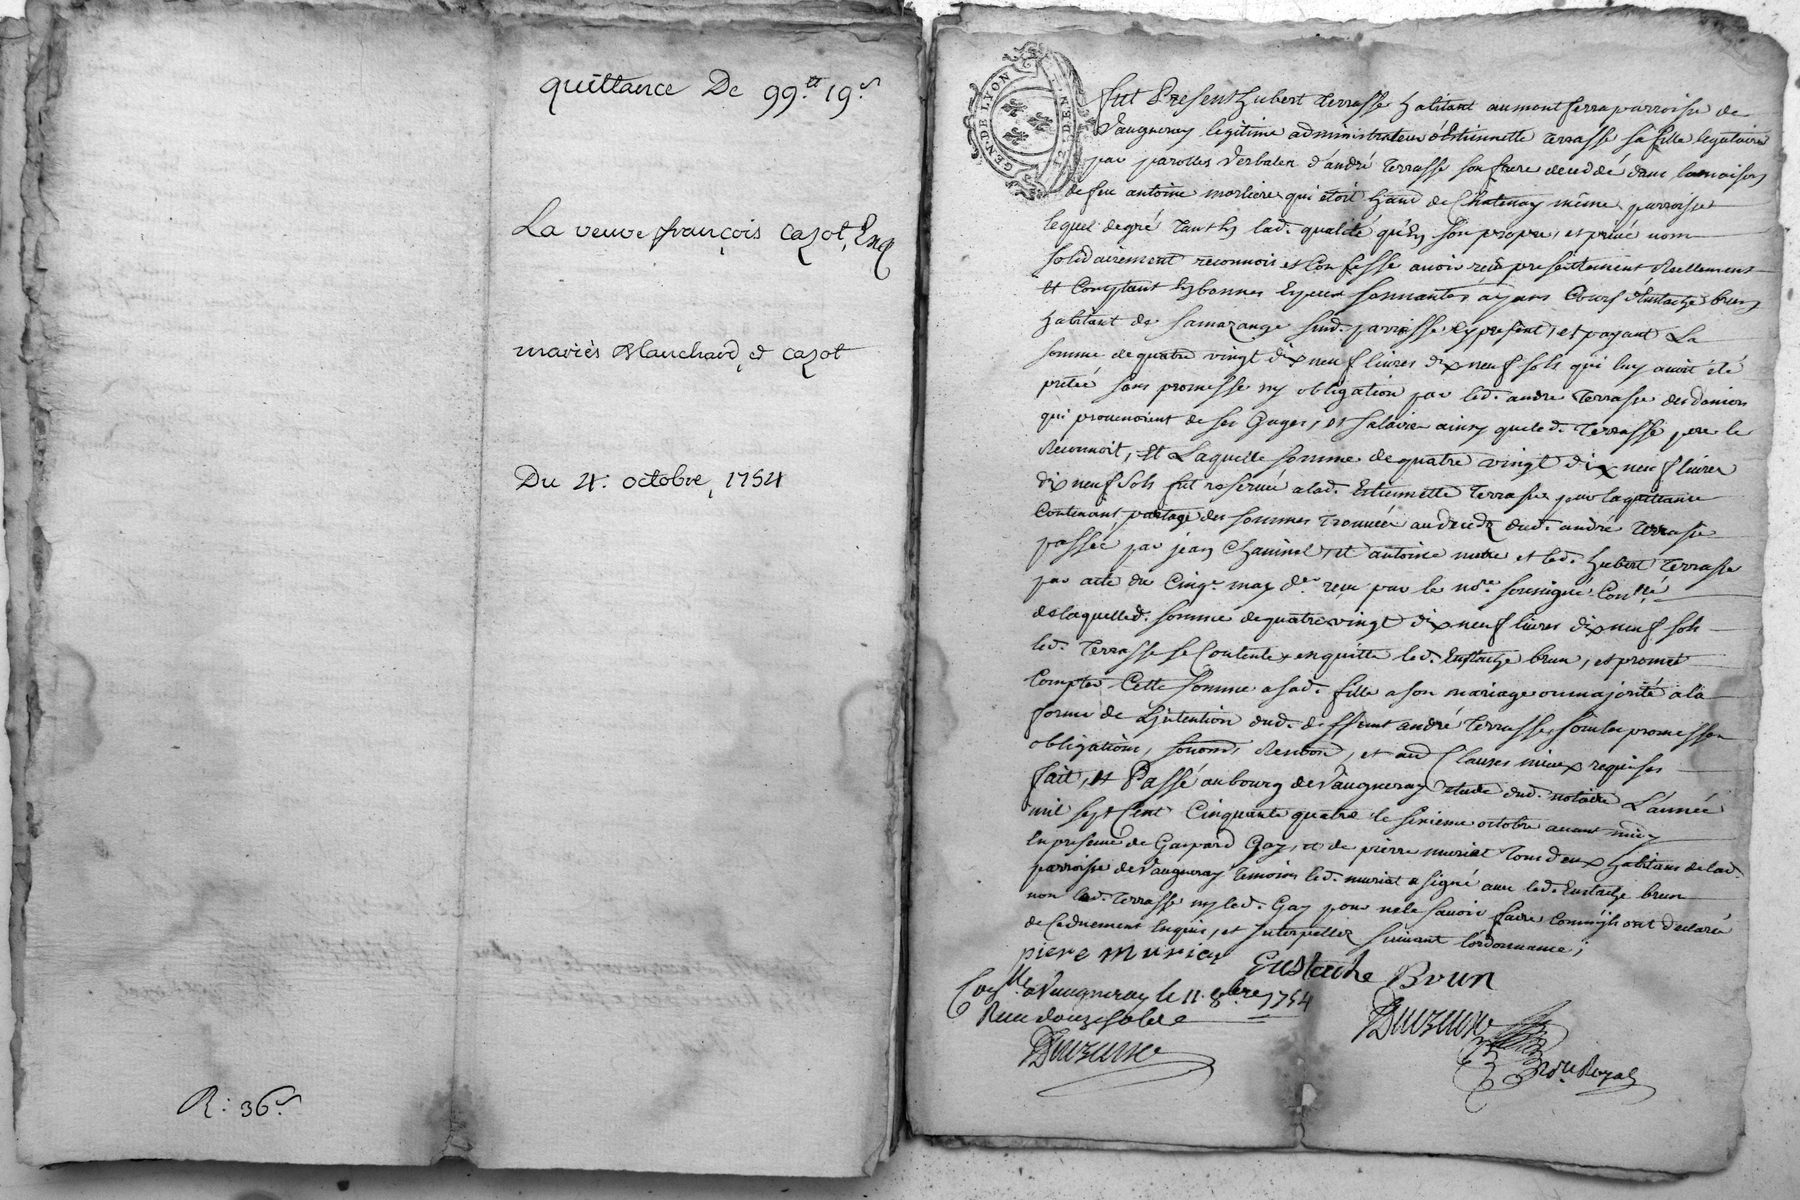 quittance De 99.tt 19.s
La veuve françois cazot, Enq
mariés Blanchard et cazot
Du 4. octobre, 1754
R: 36.s
GEN. DE LYON
12 DEN.
fut Present hubert terrasse habitant au mont ferra parroisse de
Vaugneray legitime administrateur d'Estiennette terrasse sa fille legataire
par parolles verbales d'andré terrasse son frere decedé dans la maison
de feu antoine morliere qui étoit hant de Chatenay même parroisse
lequel de gré tant En lad. qualité qu'En son propre, et privé nom
solidairement reconnois et Confesse avoir reçu presentement reellement
Et Comptant En bonnes Especes sonnantes ayans Cours d'Eustache brun
habitant de Samazange sud. parroisse cy present, et payant La
somme de quatre vingt dix neuf livres dix neuf sols qui luy avoit été
pretée sans promesse ny obligation par led. andre terrasse des deniers
qui provenoient de ses Gages, et salaires ainsy que led. terrasse pere le
Reconnoit, Et Laquelle somme de quatre vingt dix neuf livres
dix neuf sols fut reservée a lad. Estiennette terrasse par la quittance
Contenant partage des sommes trouvées au decedz dud. andré terrasse
passée par jean et antoine et led. hubert terrasse
par acte du Cinq.e may d.er reçu par le no.re soussigné Con.llé
de laquelled. somme de quatre vingt dix neuf livres dix neuf sols
led. terrasse se Contente, en quitte led. Eustache brun, et promet
Compter Cette somme a sad. fille a son mariage ou majorité a la
forme de L'jntention dud. deffunt andré terrasse, sous les promesses
obligations, soumis. Renon.on, et aud Clauses mieux requises
fait, et Passé au bourg de Vaugneray etude dud. notaire L'année
mil sept Cent Cinquante quatre le sixieme octobre avant midy
En presence de Gaspard Gay, et de pierre muriat tous deux habitans de lad.
parroisse de Vaugneray temoins led. muriat a signé avec led. Eustache brun
non led. terrasse ny led. Gay pour ne le savoir faire comm'jls ont declaré
de Ce duement Enquis, et jnterpellez suivant l'ordonnance;
piere muriat
Eustache Brun
Con.llé a Vaugneray le 11. 8bre 1754
Reçu douze sols
no.re Royal